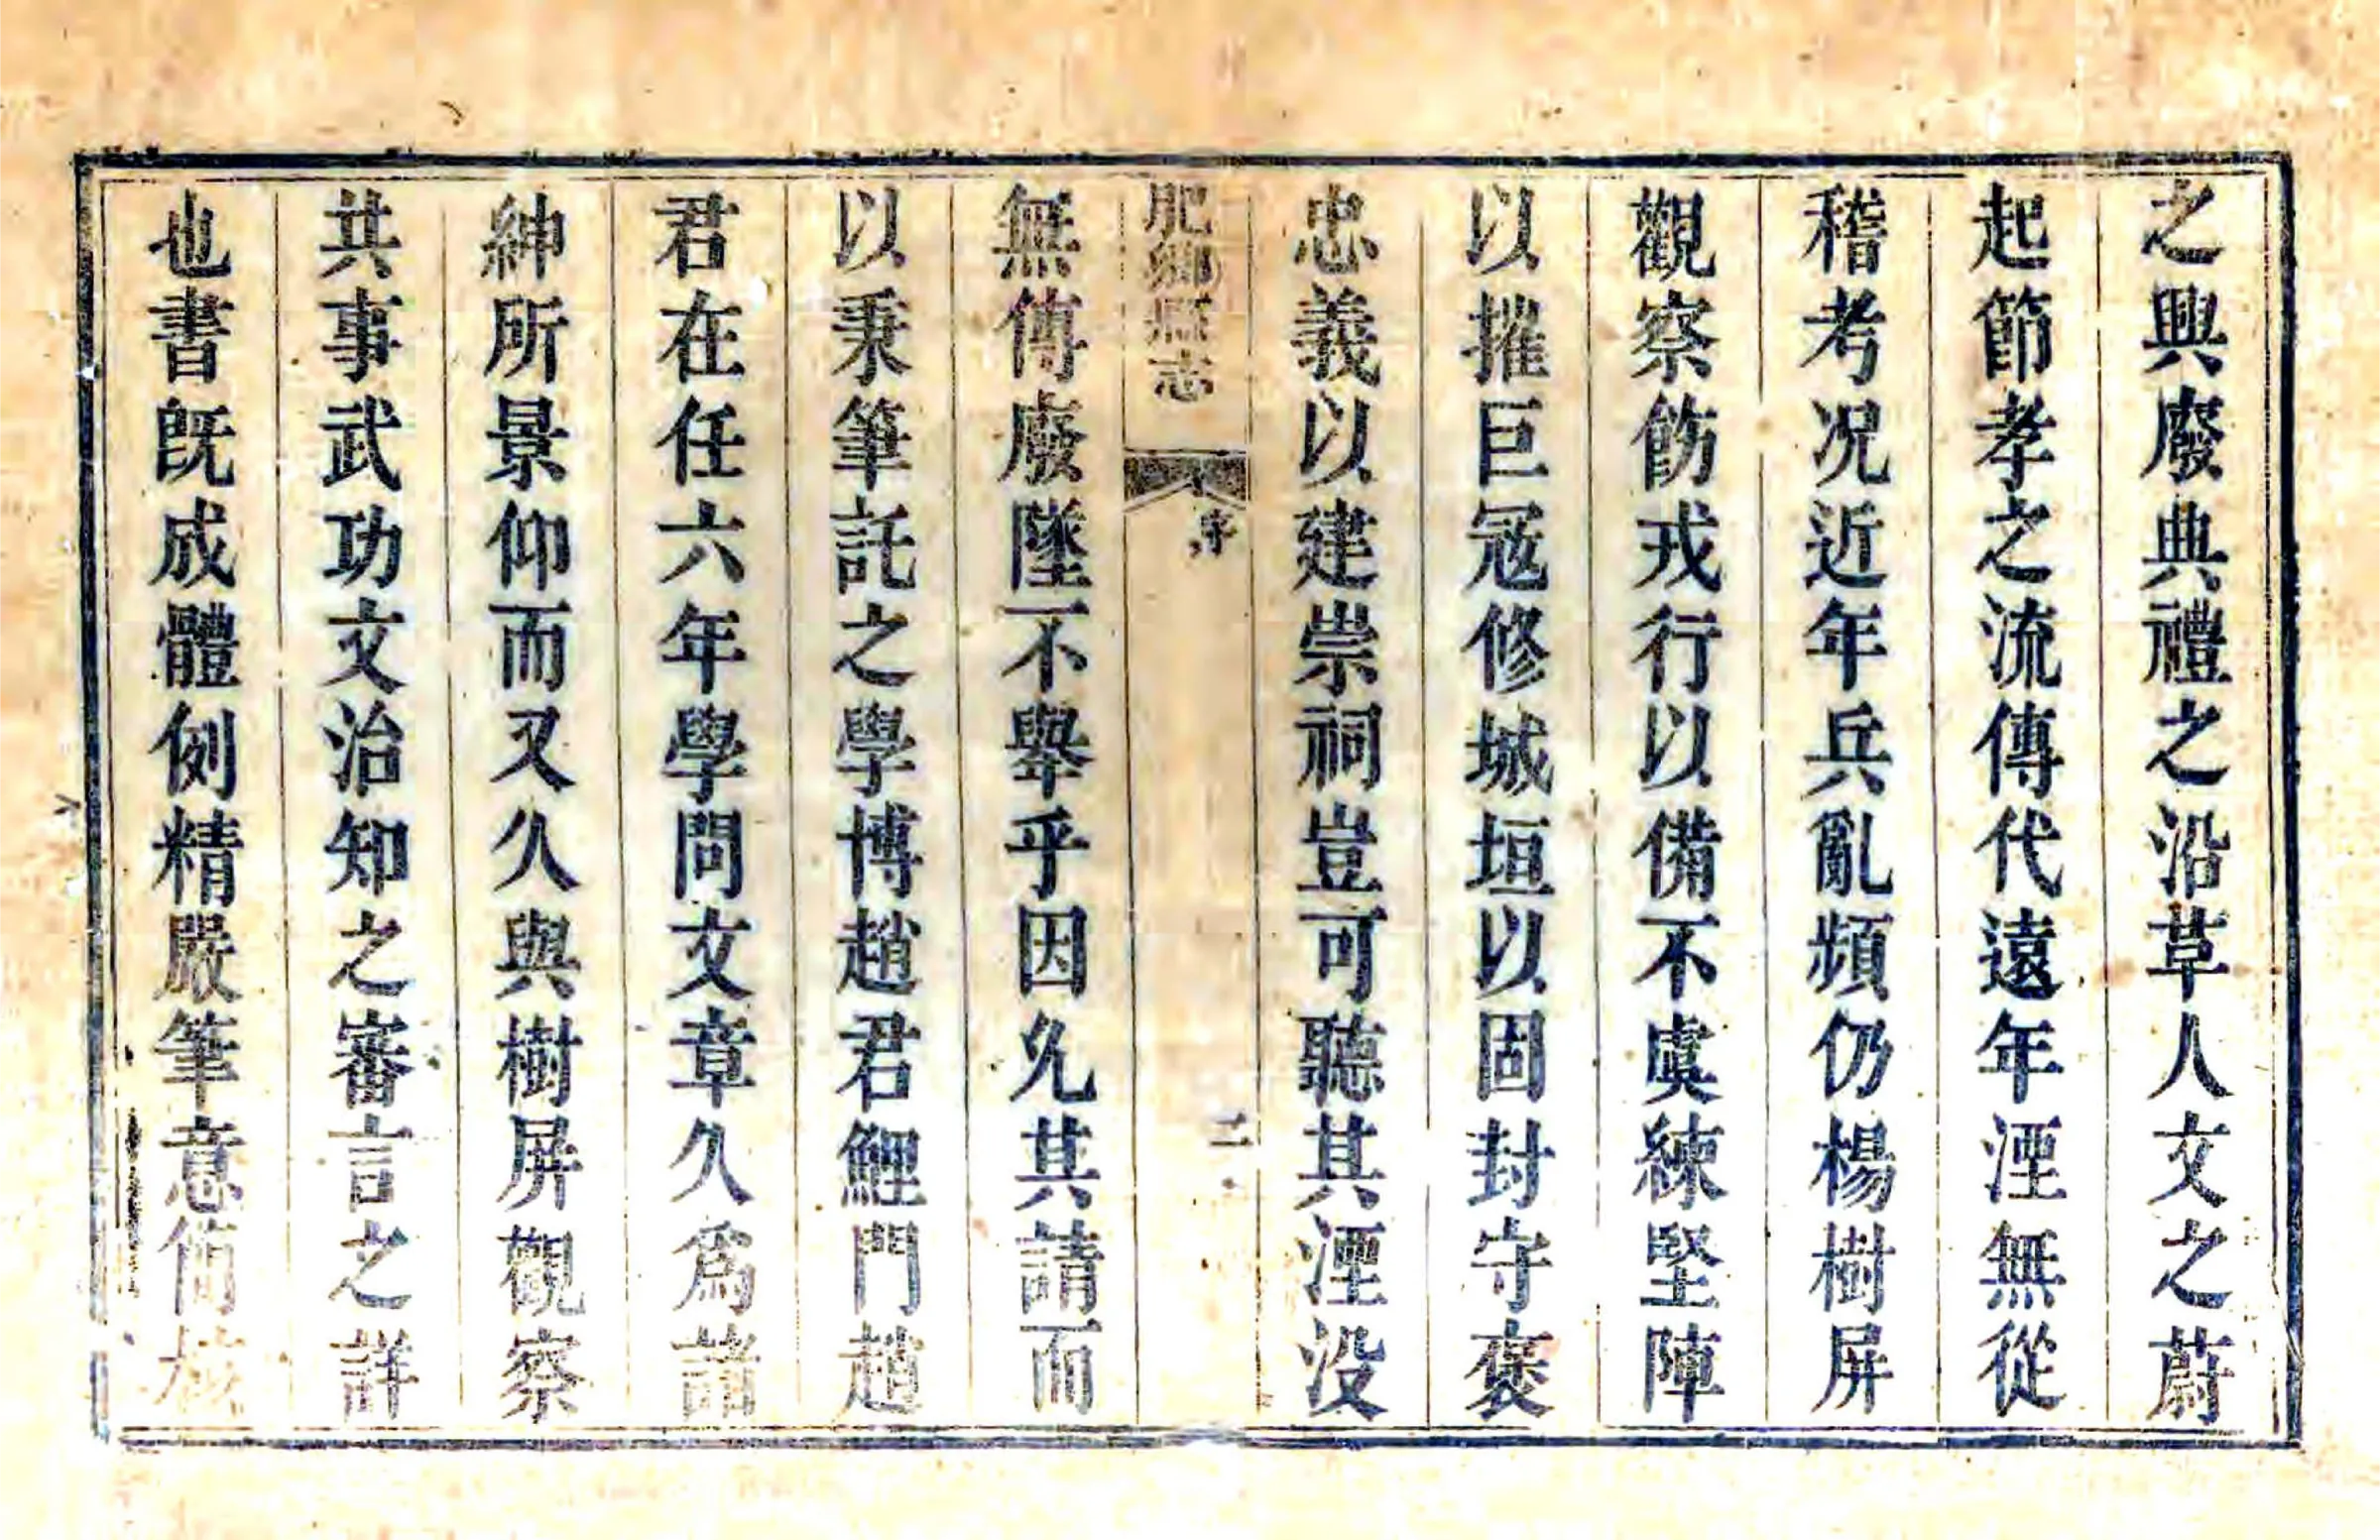 之興廢典禮之沿草人文之蔚
起節孝之流傳代遠年湮無從
稽考况近年兵亂頻仍楊樹屏
觀察飭戎行以備不虞練堅陣
以摧巨冦修城垣以固封守褒
忠義以建崇祠豈可聽其湮没
肥鄉縣志
序
二
無傳廢墜不舉乎因允其請而
以秉筆託之學博趙君鯉門趙
君在任六年學問文章久爲諸
紳所景仰而又久與樹屏觀察
共事武功文治知之審言之詳
也書旣成體例精嚴筆意簡核